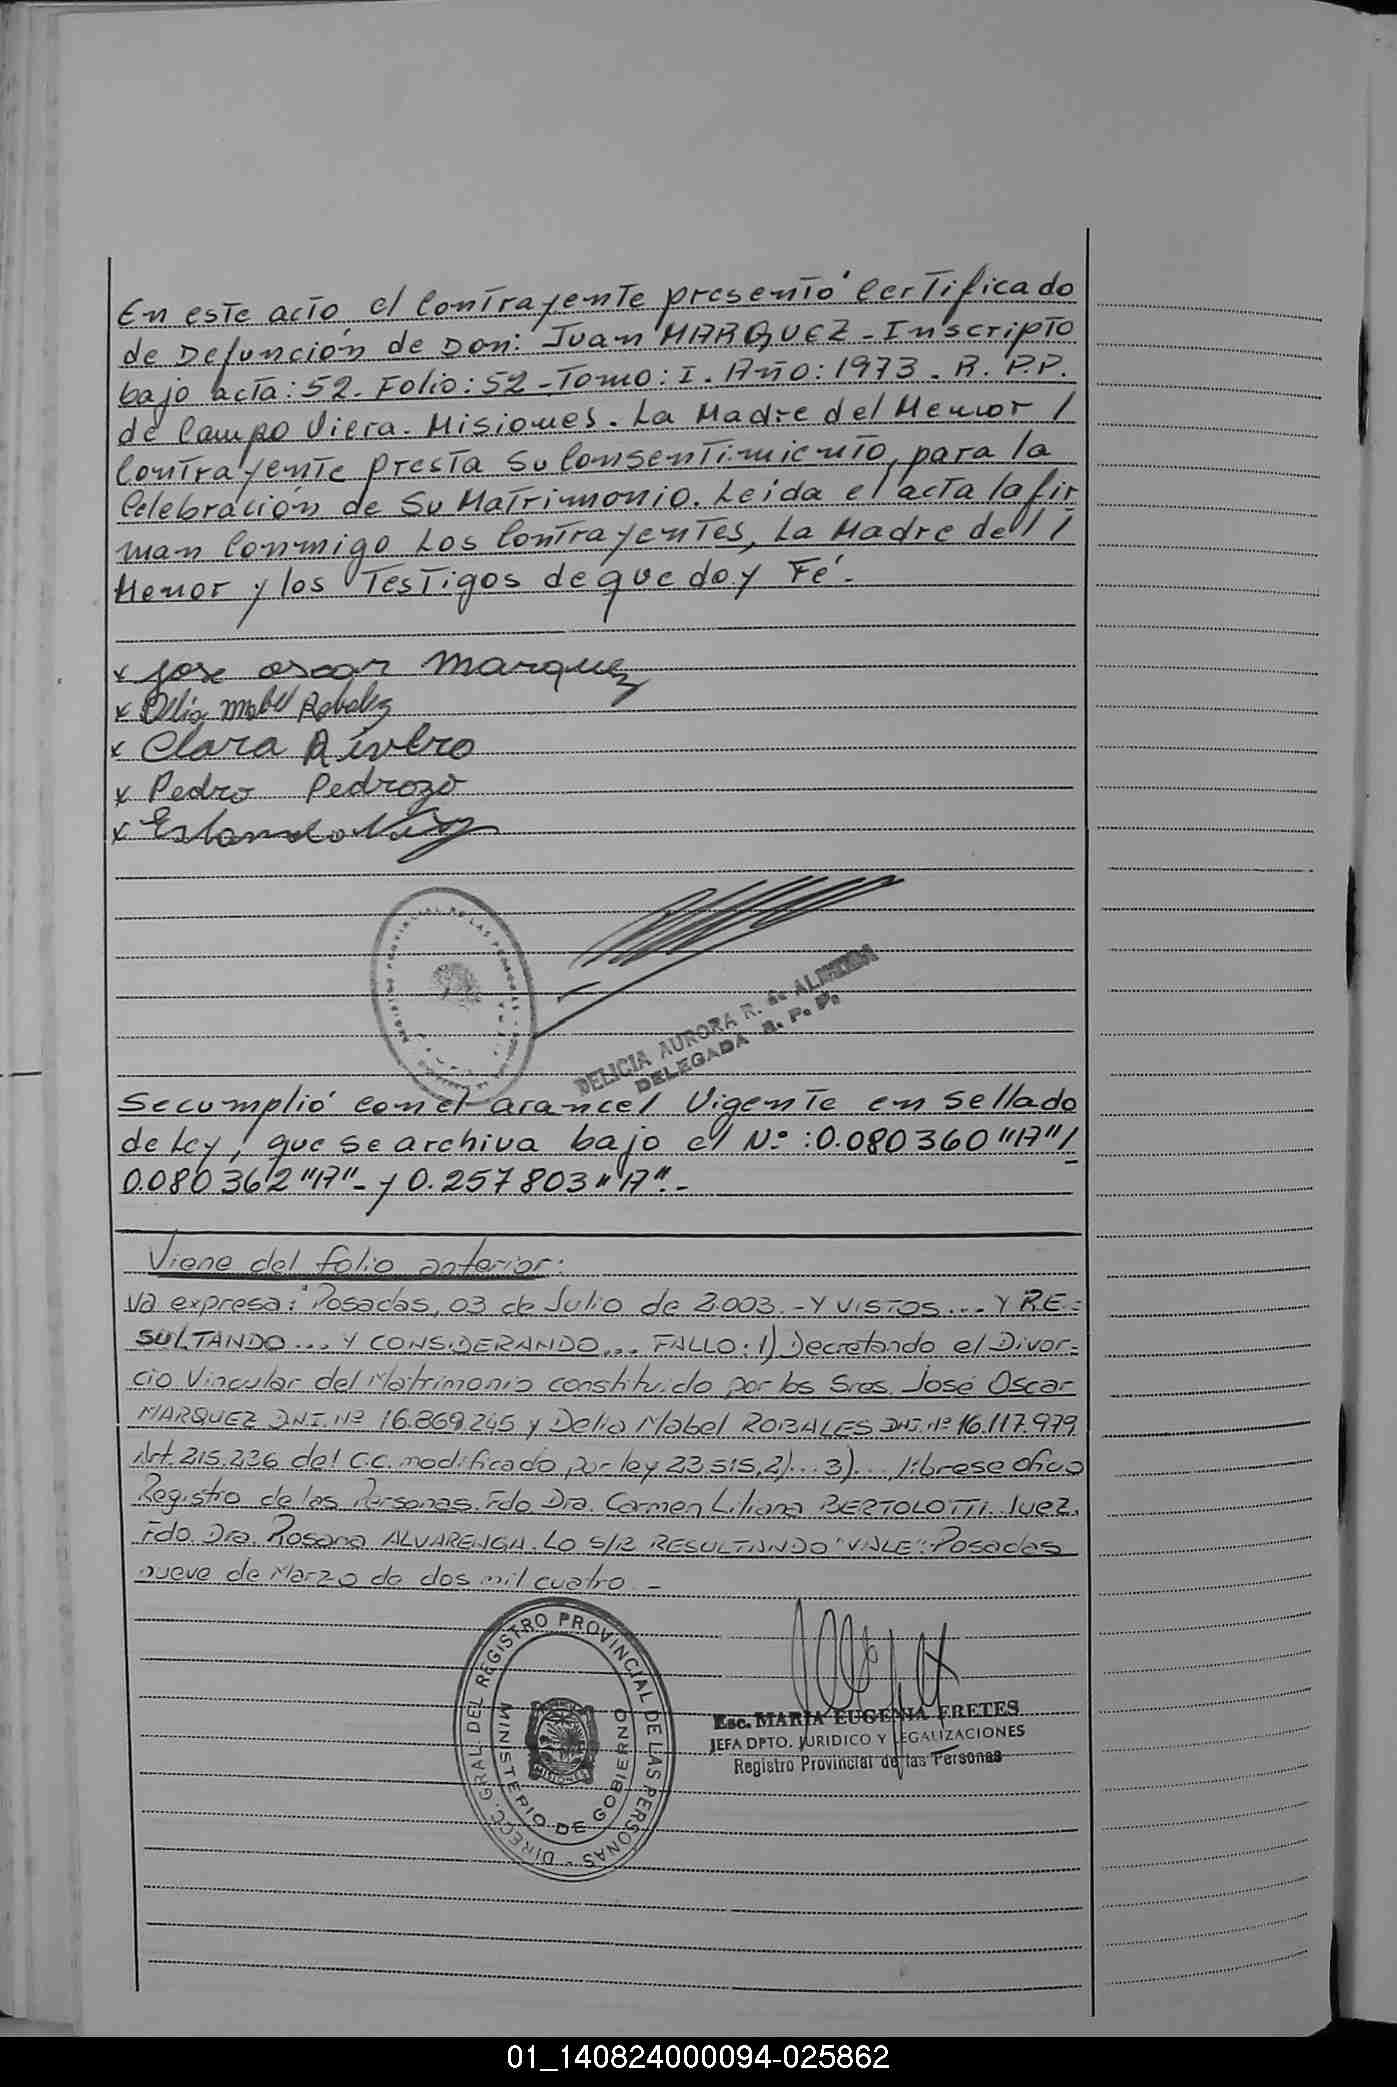 En este acto el Contrayente presentó Certificado
de Defunción de Don: Juan MARQUEZ - Inscripto
bajo acta: 52. Folio: 52 - Tomo: I. Año: 1973. R. P.P.
de Campo Viera. Misiones. La Madre del Menor /
Contrayente presta su Consentimiento, para la
Celebración de Su Matrimonio. Leída el acta la fir
man Conmigo Los Contrayentes, La Madre del /
Menor y los Testigos de que doy Fé.
x Jose oscar Marquez
x Delia Mabel Robales
x Clara Rivero
x Pedro Pedrozo
x
DELICIA AURORA R. de ALMEIDA
DELEGADA R. P. P.
Se cumplió con el arancel Vigente en Sellado
de Ley, que se archiva bajo el Nº: 0.080360 "A" /
0.080362 "A" - y 0.257803 "A". -
Viene del folio anterior:
va expresa: "Posadas, 03 de Julio de 2.003. - Y VISTOS ... Y RE=
SULTANDO ... Y CONSIDERANDO ... FALLO: 1) Decretando el Divor=
cio Vincular del Matrimonio constituido por los Sres. José Oscar
MARQUEZ DNI. Nº 16.869.245 y Delia Mabel ROBALES DNI. Nº 16.117.979
Art. 215, 236 del C.C. modificado por ley 23515, 2)... 3)..., líbrese oficio
Registro de las Personas. Fdo Dra. Carmen Liliana BERTOLOTTI. Juez.
Fdo. Dra. Rosana ALVARENGA. Lo S/R RESULTANDO "VALE". Posadas
nueve de Marzo de dos mil cuatro. -
DIRECC. GRAL. DEL REGISTRO PROVINCIAL DE LAS PERSONAS -
MINISTERIO DE GOBIERNO
MISIONES
Esc. MARIA EUGENIA FRETES
JEFA DPTO. JURIDICO Y LEGALIZACIONES
Registro Provincial de las Personas
01_140824000094-025862